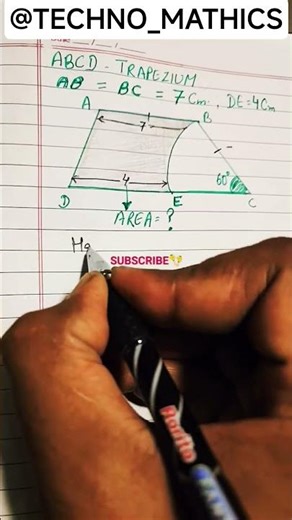 @TECHNO_MATHICS
ABCD - TRAPEZIUM
AB = BC = 7 cm, DE = 4 cm
A
B
7
60°
4
D
E
C
AREA = ?
SUBSCRIBE